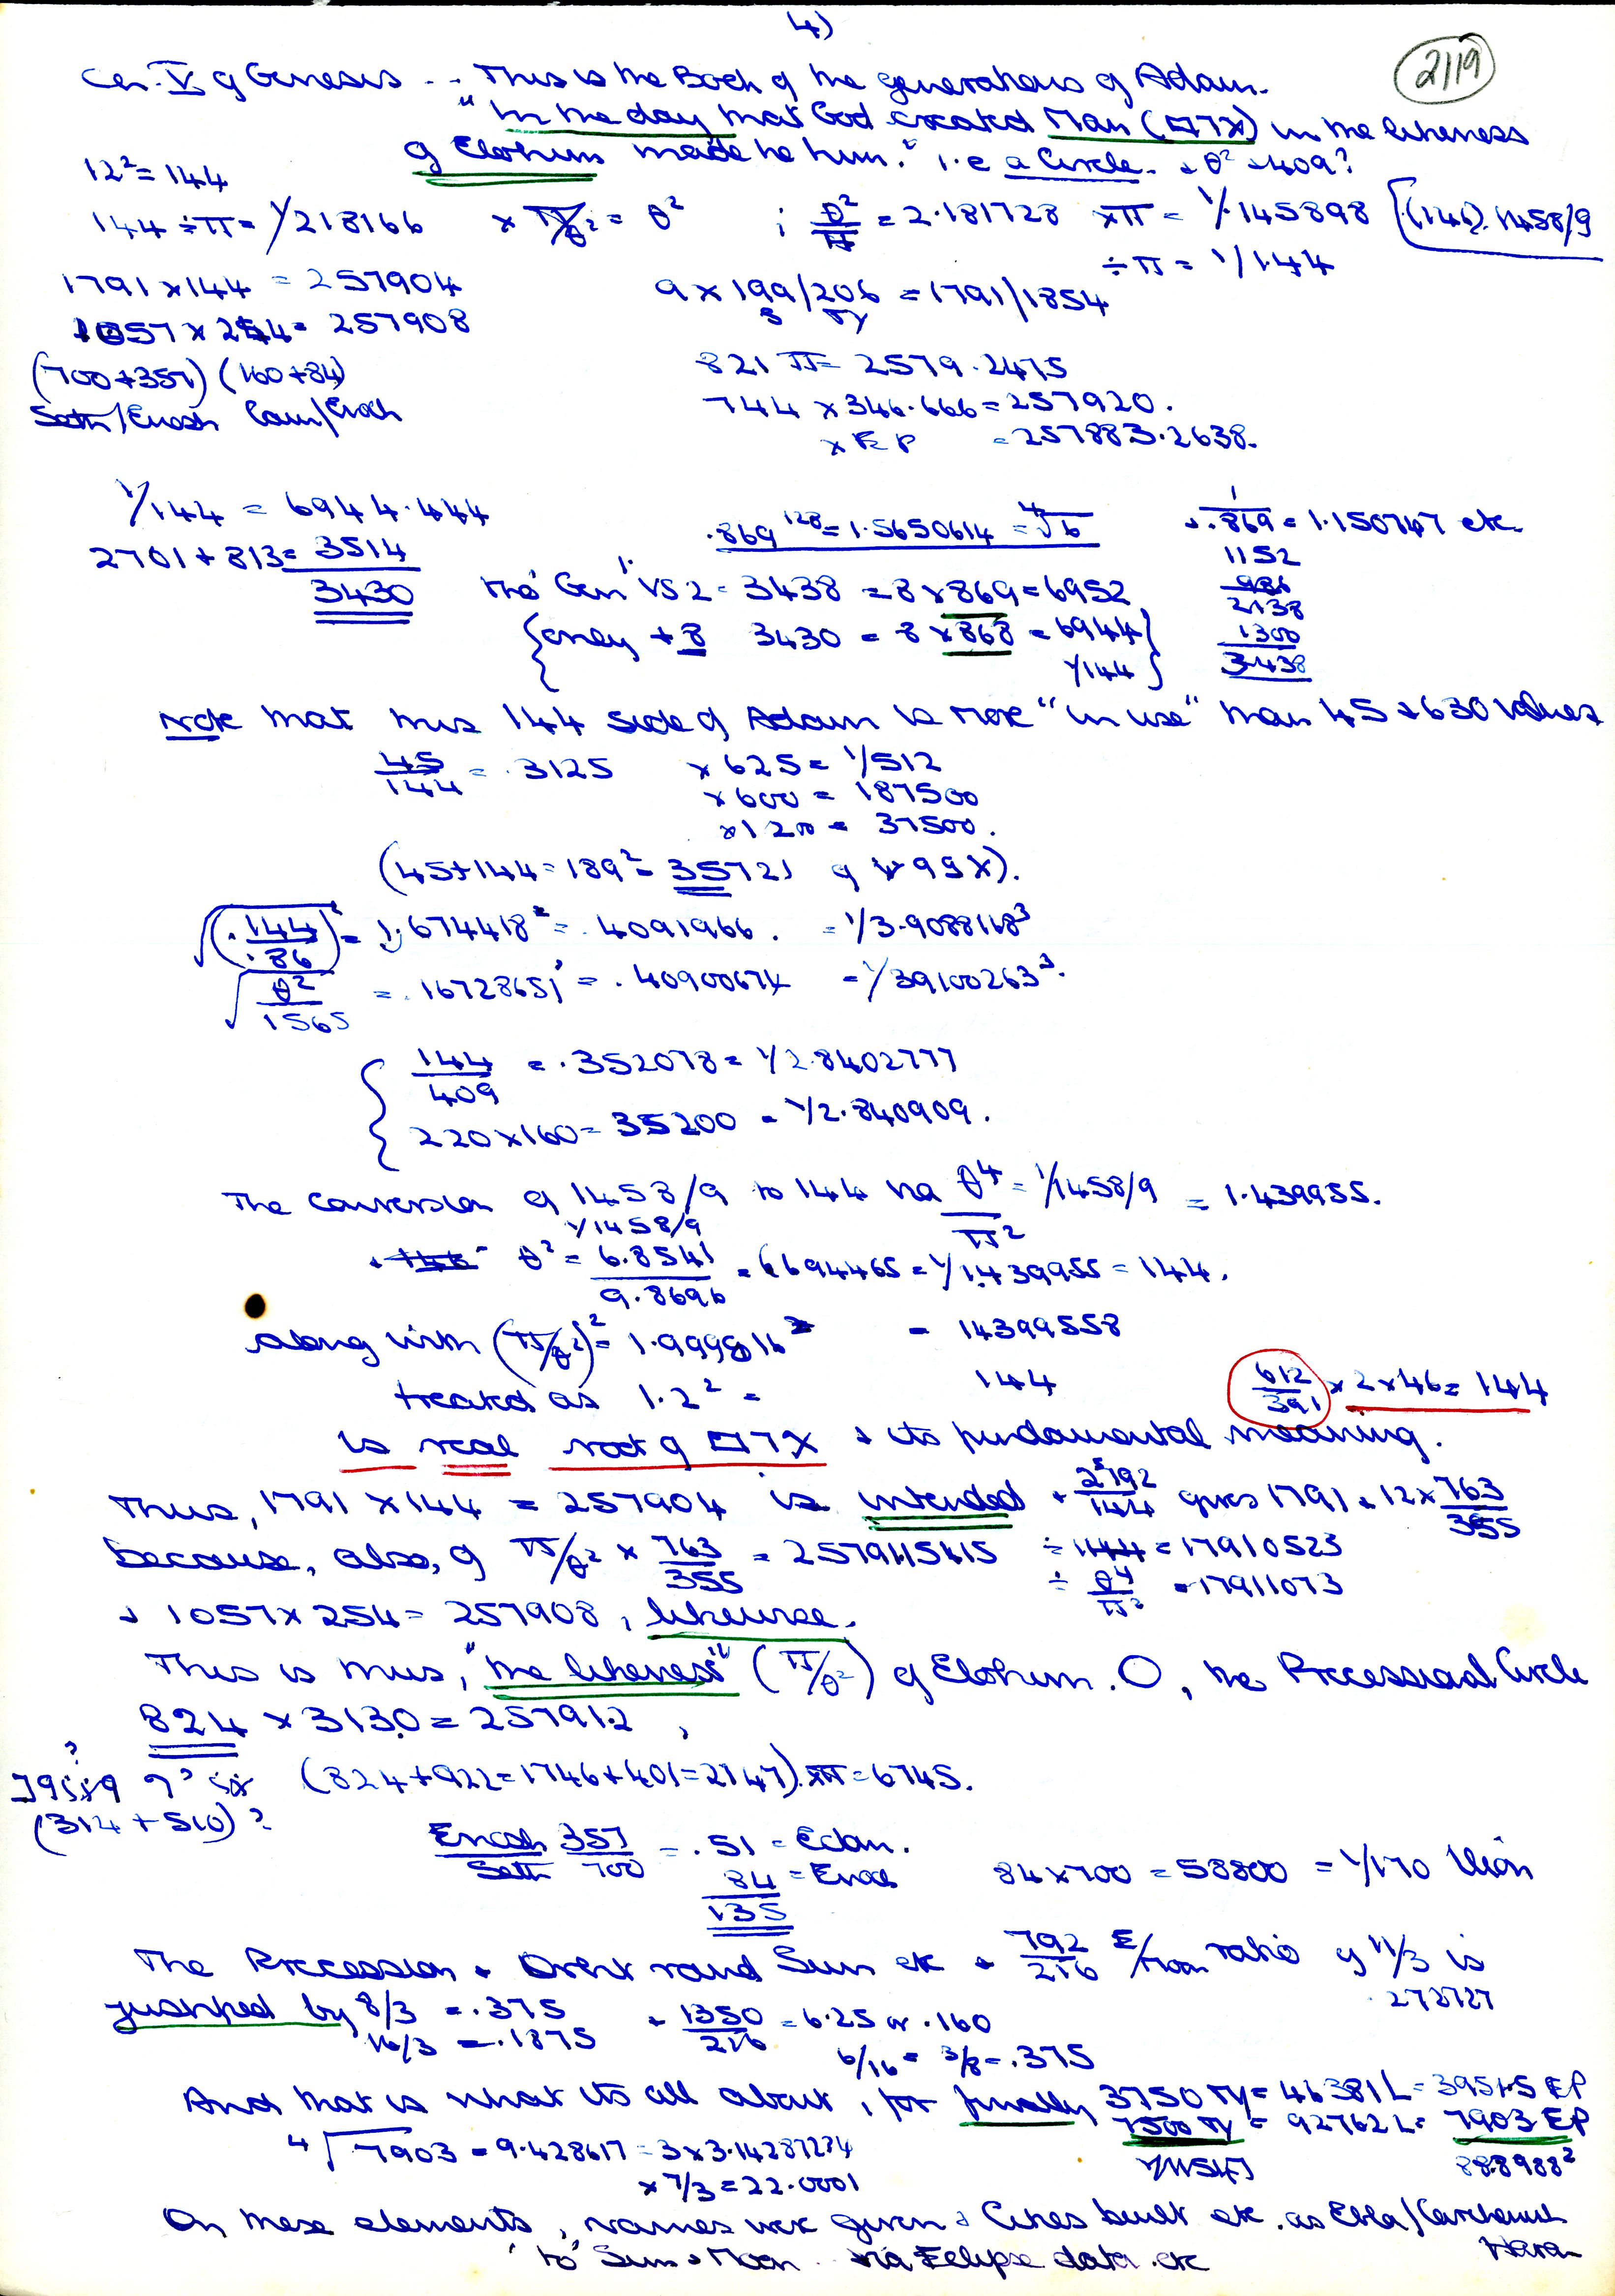 4)
2119
Ch. V of Genesis .. This is the Book of the generations of Adam.
"In the day that God created Man (□7X) in the likeness
of Elohim made he him." i.e a Circle. + θ² + 409?
12² = 144
144 ÷ π = 1/218166 × π/θ² = θ² ; θ²/π = 2.181728 × π = 1/.145898 [(146). 1458/9
÷ π = 1/144
1791 × 144 = 257904 9 × 199/206 = 1791/1854
1057 × 244 = 257908
(700+357) (160+84) 821 π = 2579.2475
Seth/Enosh Cain/Enoch 744 × 346.666 = 257920.
× EP = 257883.2638.
1/144 = 6944.444 .869 = 1.5650614 = ∜6 + 1/.869 = 1.150747 etc.
2701 + 813 = 3514 1152
3430 The 'Gen' 1. VS 2 = 3438 = 8 × 869 = 6952 986
2138
{only + 8 3430 = 8 × 868 = 6944} 1300
1/144 3438
Note that this 144 side of Adam is more "in use" than 45 + 630 values
45/144 = .3125 × 625 = 1/512
× 600 = 187500
× 1200 = 37500.
(45+144 = 189² = 35721 of 99X).
√(.144/.86)² = 1.674418² = .4091966. = 1/3.9088168³
√θ²/1565 = .1672865 = .40900674 = 1/39100263³.
{ 144/409 = .352078 = 1/2.8402777
220 × 160 = 35200 = 1/2.840909.
The conversion of 1458/9 to 144 via θ⁴/π² = 1/1458/9 = 1.439955.
1/1458/9
θ² = 6.8541/9.8696 = 6694465 = 1/1.439955 = 144.
along with (π/θ²)² = 1.1999816² = 14399558
treated as 1.2² = 144 612/391 × 2 × 46 = 144
is real root of □7X + its fundamental meaning.
Thus, 1791 × 144 = 257904 is intended + 25792/144 gives 1791 + 12 × 763/355
because, also, of π/θ² × 763/355 = 257915415 ÷ 144 = 17910523
÷ θ⁴/π² = 17911073
+ 1057 × 254 = 257908, likewise.
This is thus, "the likeness" (π/θ²) of Elohim. O, the Precessional Circle
824 × 3130 = 257912,
(824+922 = 1746+401 = 2147) × π = 6745.
(314 + 510)?
Enosh/Seth 357/700 = .51 = Edan.
84 = Enoch 84 × 700 = 58800 = 1/170
135
The Precession + Orbit round Sun etc + 792/216 E/Moon ratio of 11/3 is
.272727
justified by 8/3 = .375 + 1350/216 = 6.25 or .160
16/3 = .1875 6/16 = 3/8 = .375
And that is what its all about, for finally 3750 TY = 46381 L = 3951.5 EP
7500 TY = 92762 L = 7903 EP
∜7903 = 9.428617 = 3 × 3.14287234 88.8988²
× 7/3 = 22.0001
On these elements, names were given + Cities built etc. as Ebla/Carchemish
Haran
'to' Sun + Moon via Eclipse data. etc